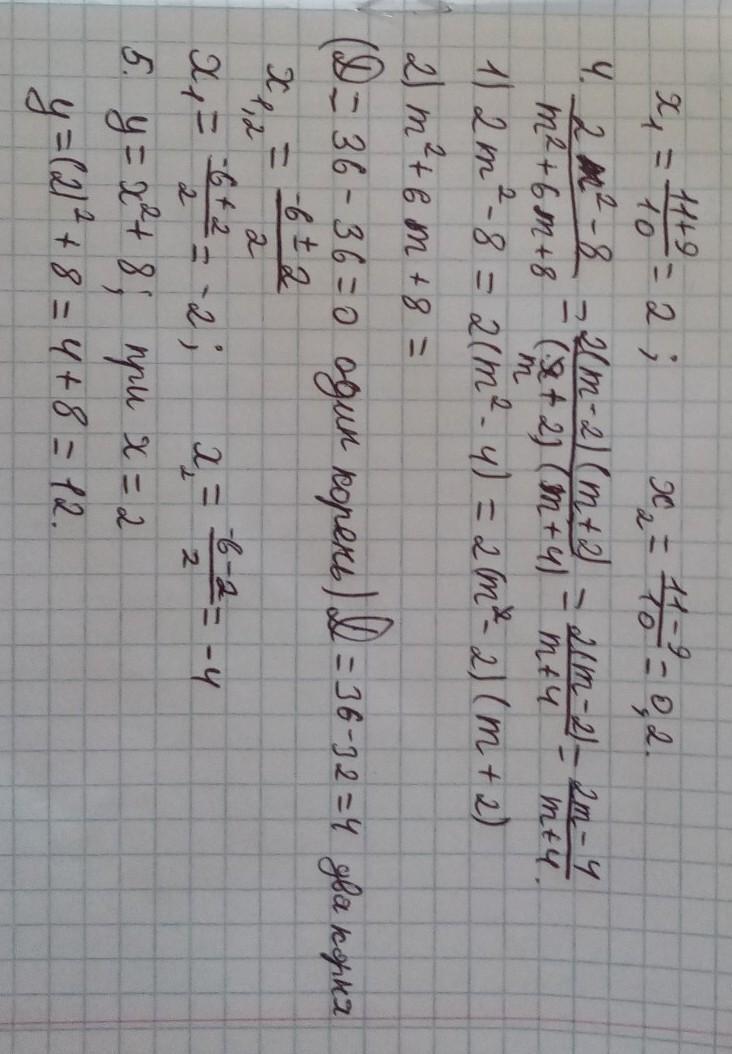 x₁ = (11+9)/10 = 2; x₂ = (11-9)/10 = 0,2.
4. (2m²-8)/(m²+6m+8) = 2(m-2)(m+2)/(m+2)(m+4) = 2(m-2)/(m+4) = (2m-4)/(m+4).
1) 2m²-8 = 2(m²-4) = 2(m-2)(m+2)
2) m²+6m+8 =
(D = 36-36=0 один корень) D = 36-32=4 два корня
x₁,₂ = (-6±2)/2
x₁ = (-6+2)/2 = -2; x₂ = (-6-2)/2 = -4
5. y = x²+8; при x = 2
y = (2)²+8 = 4+8 = 12.